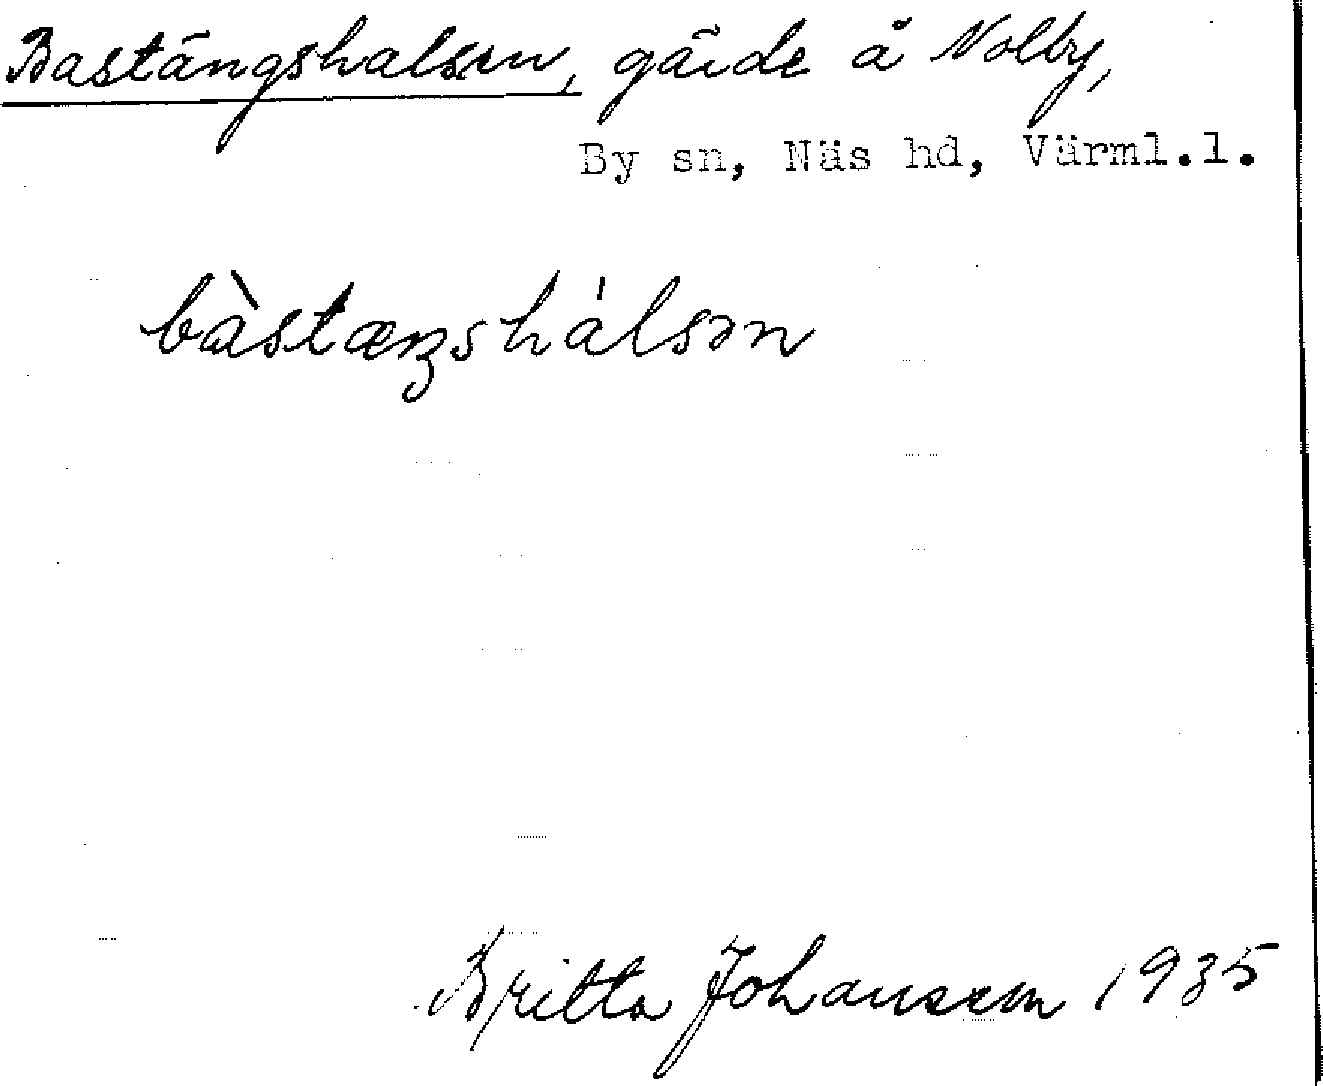 Bastängshalsen, gärde å Nolby,
By sn, Näs hd, Värml.l.
bàstæŋshálsən
Britta Johansson 1935